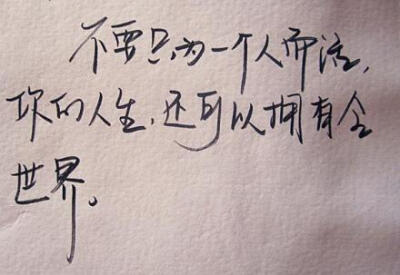 不要只为一个人而活,
你的人生,还可以拥有全
世界。